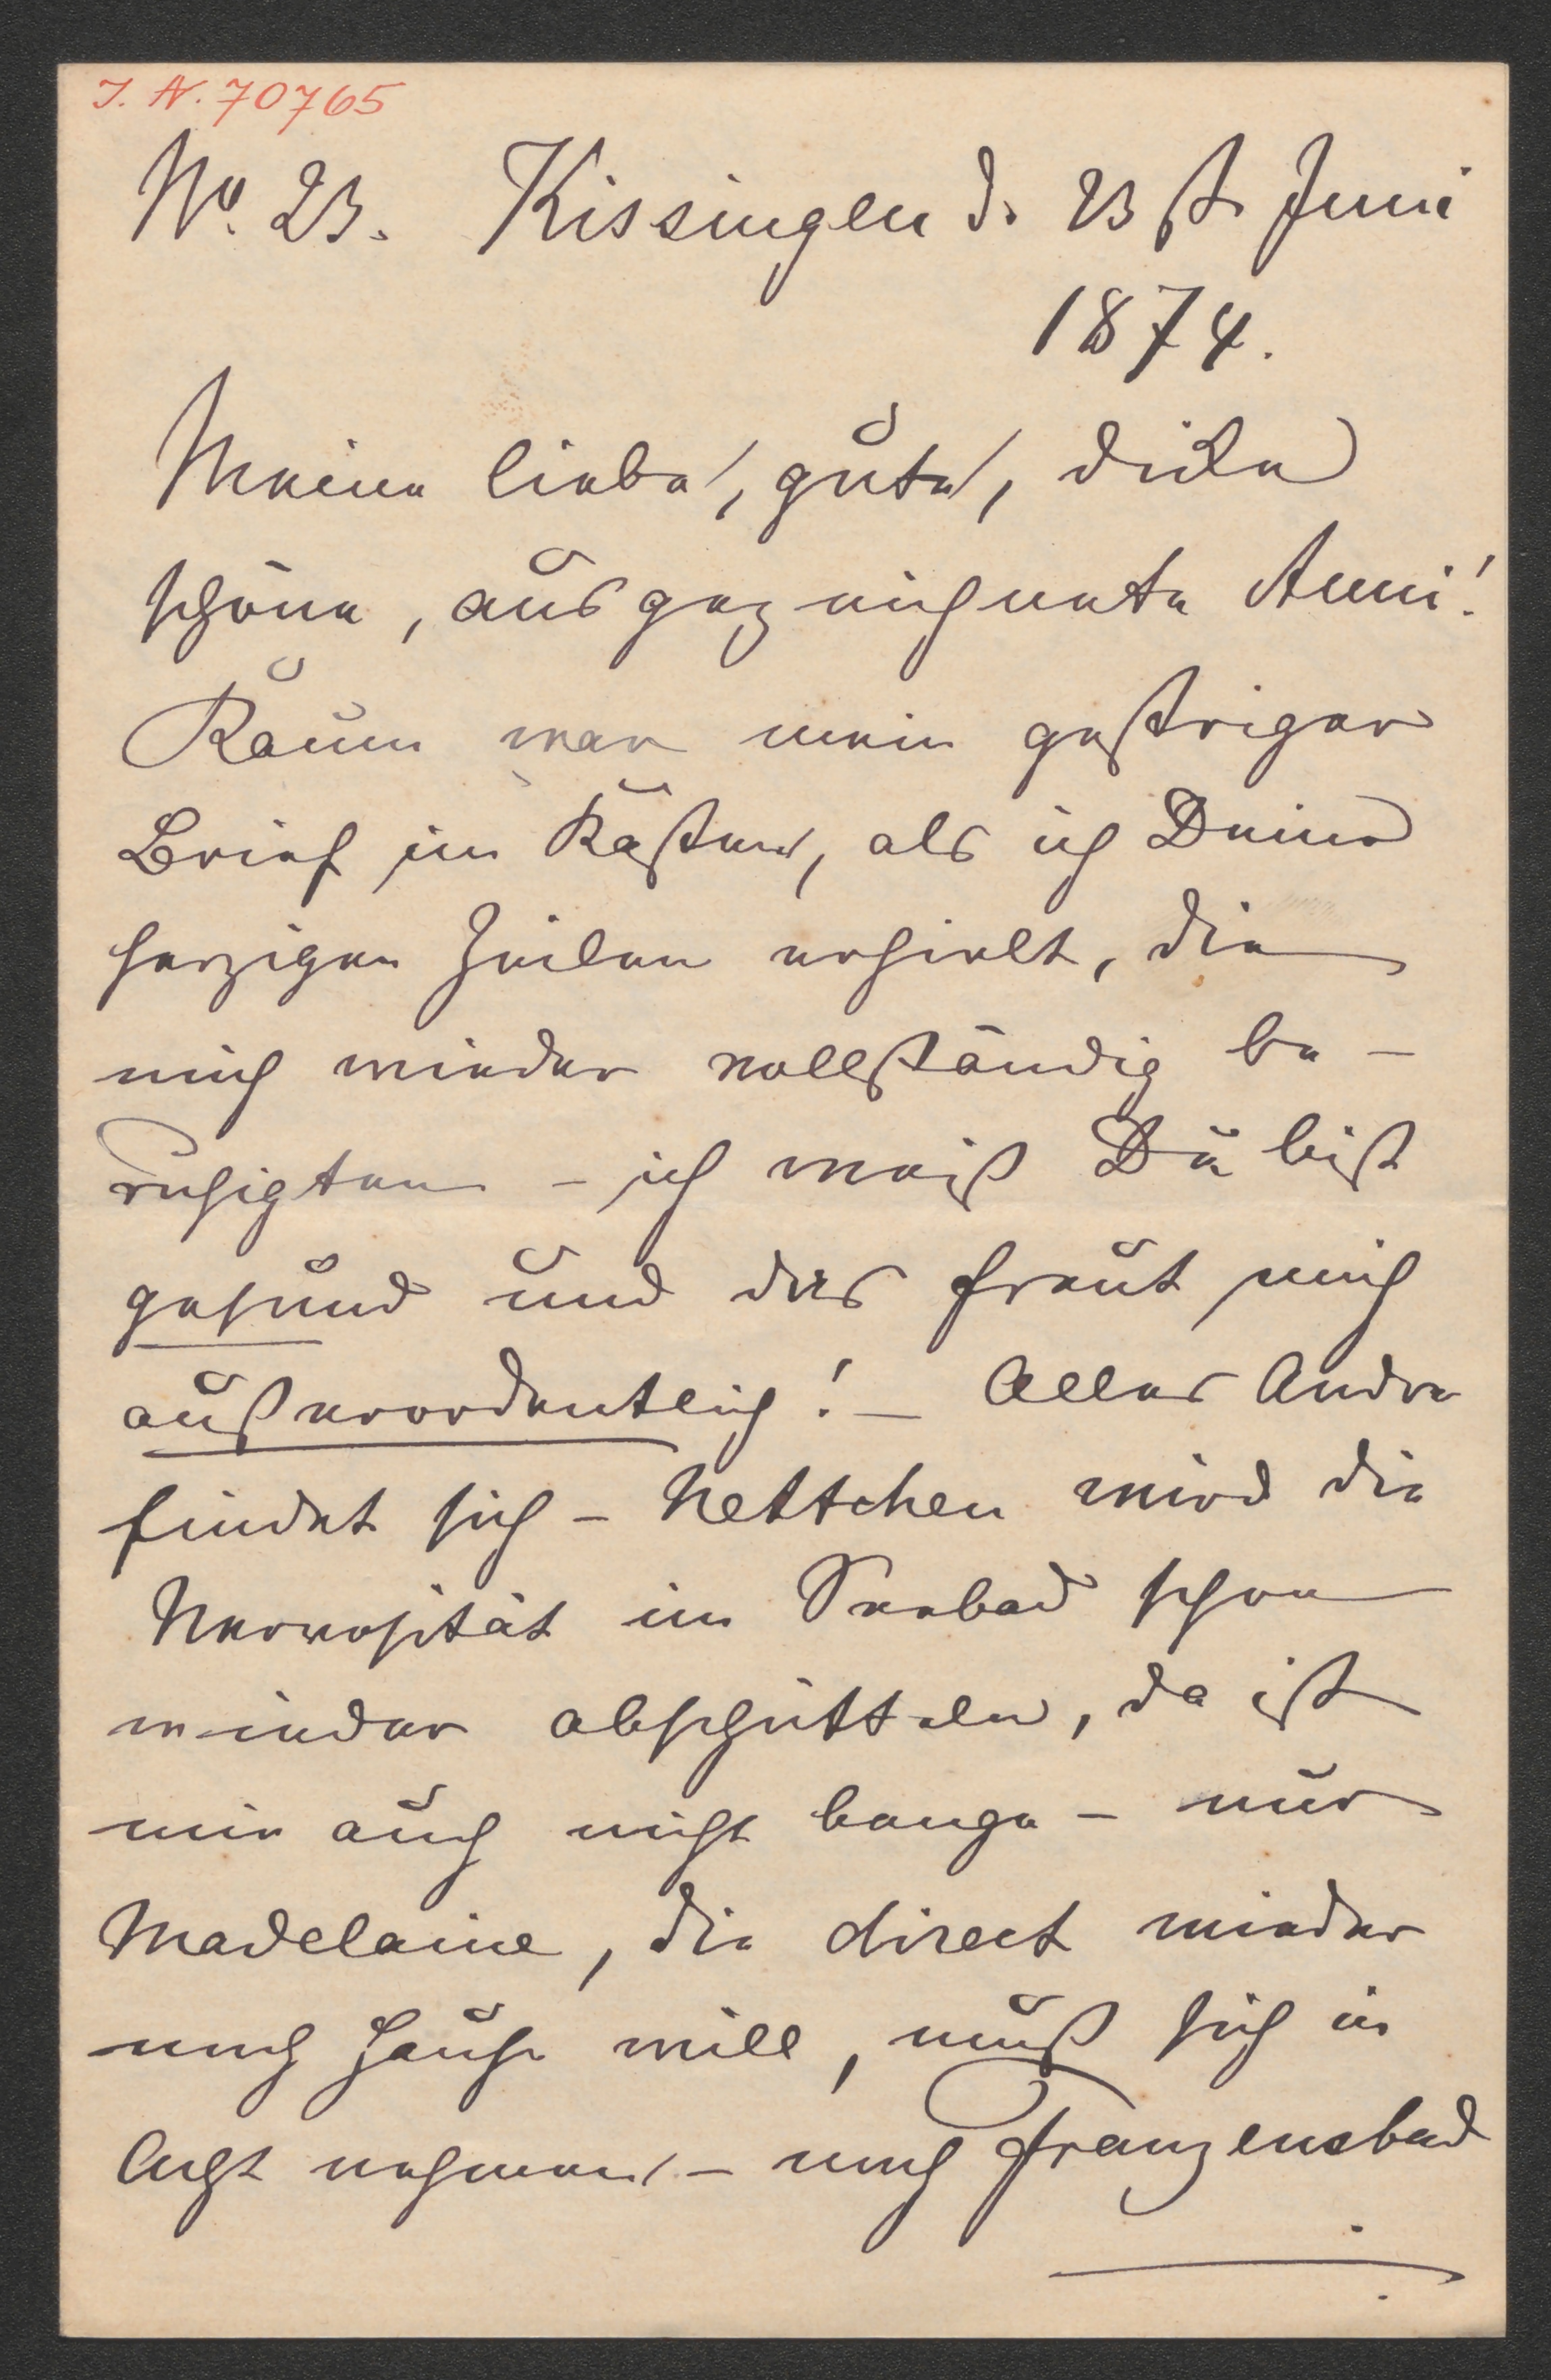 I. N. 70765
No. 23. Kissingen d. 23st. Juni
1874.
Meine liebe, gute, dicke
schöne, ausgezeichnete Anni!
Kaum war mein gestriger
Brief im Kasten, als ich Deine
herzigen Zeilen erhielt, die
mich wieder vollständig be-
ruhigten - ich weiß Du bist
gesund und das freut mich
außerordentlich! - Alles Andre
findet sich - Nettchen wird die
Nervosität im Seebad schon
wieder abschütteln, da ist
mir auch nicht bange - nur
Madelaine, die direct wieder
nach Hause will, muß sich in
Acht nehmen - nach Franzensbad